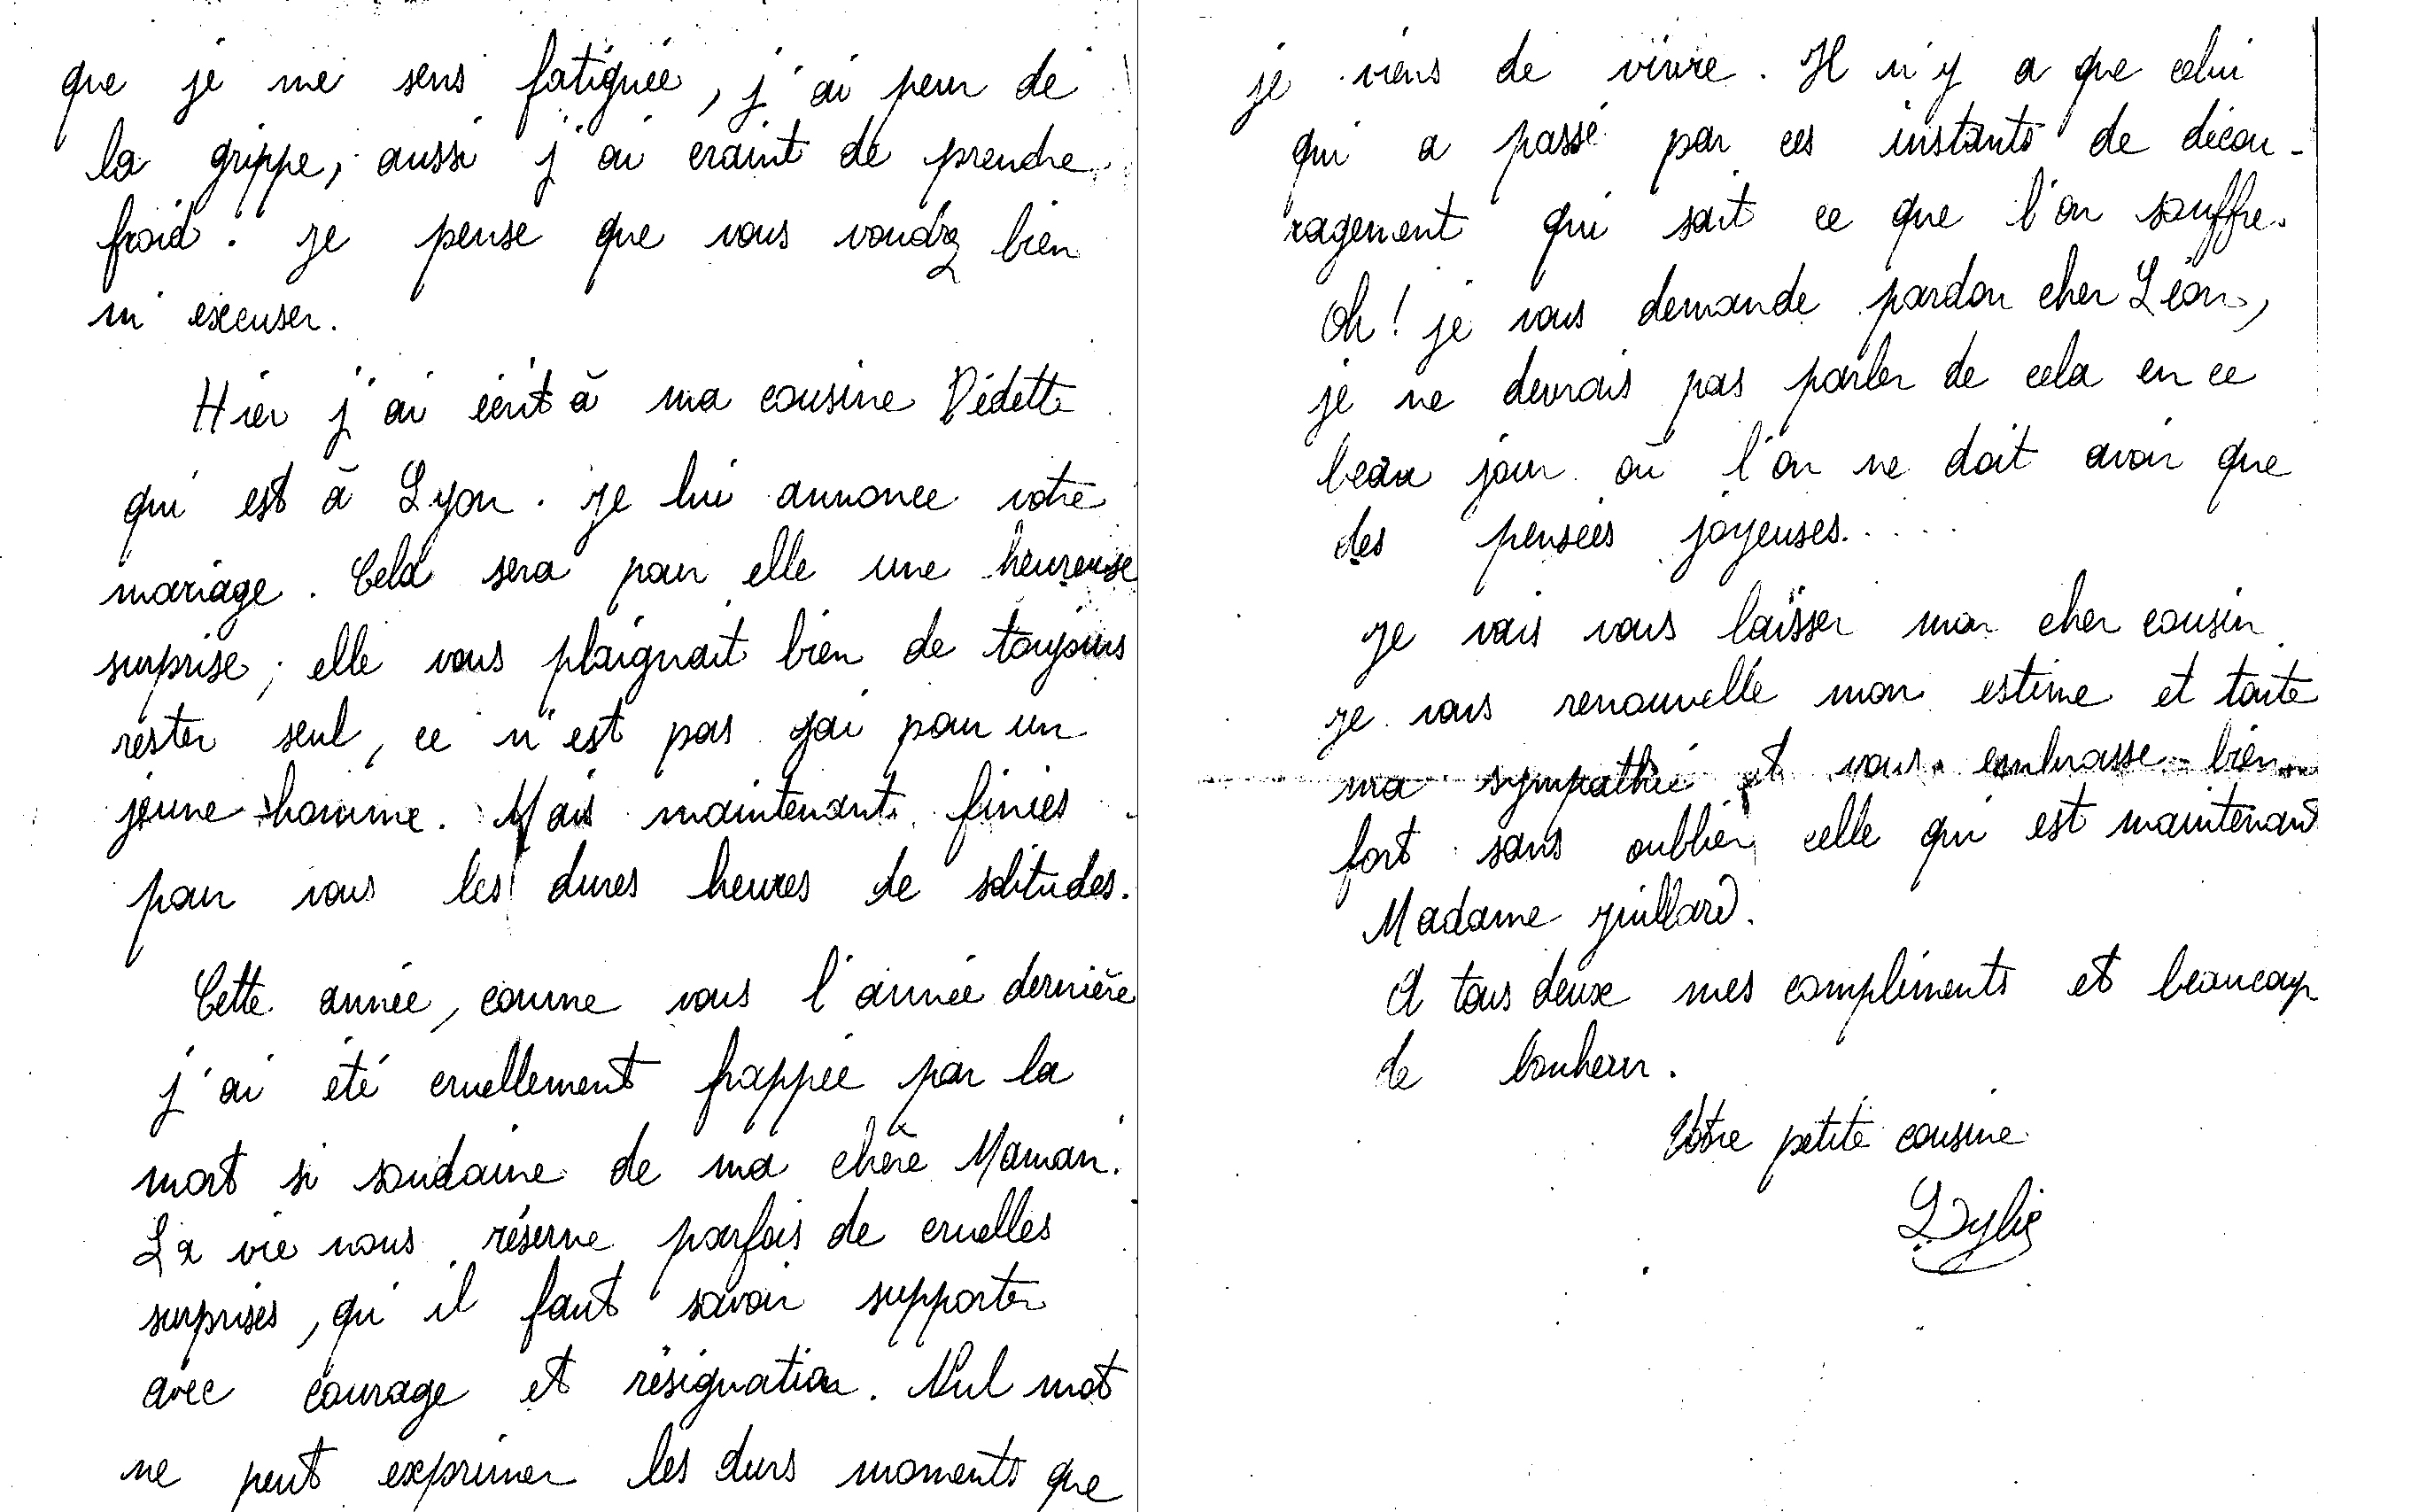 que je me sens fatiguée, j'ai peur de
la grippe, aussi j'ai craint de prendre
froid. Je pense que vous voudrez bien
m'excuser.
Hier j'ai écrit à ma cousine Dédette
qui est à Lyon. Je lui annonce votre
mariage. Celà sera pour elle une heureuse
surprise; elle vous plaignait bien de toujours
rester seul, ce n'est pas gai pour un
jeune homme. Mais maintenant finies
pour vous les dures heures de solitudes.
Cette année, comme vous l'année dernière
j'ai été cruellement frappée par la
mort si soudaine de ma chère Maman.
La vie nous réserve parfois de cruelles
surprises, qu'il faut savoir supporter
avec courage et résignation. Nul mot
ne peut exprimer les durs moments que
je viens de vivre. Il n'y a que celui
qui a passé par ces instants de décou-
ragement qui sait ce que l'on souffre.
Oh! je vous demande pardon cher Léon,
je ne devrais pas parler de cela en ce
beau jour où l'on ne doit avoir que
des pensées joyeuses.....
Je vais vous laisser mon cher cousin
Je vous renouvelle mon estime et toute
ma sympathie et vous embrasse bien
fort sans oublier celle qui est maintenant
Madame Juillard.
A tous deux mes compliments et beaucoup
de bonheur.
Votre petite cousine